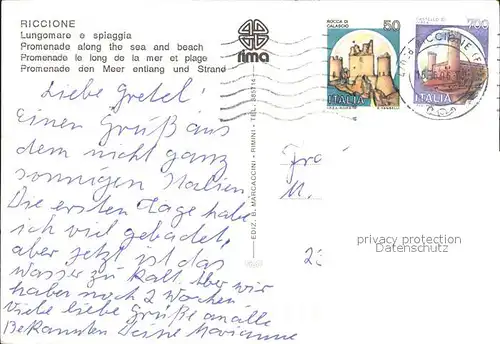 RICCIONE
Lungomare e spiaggia
Promenade along the sea and beach
Promenade le long de la mer et plage
Promenade den Meer entlang und Strand
rima
ROCCA DI CALASCIO
50
ITALIA
700
ITALIA
RICCIONE
EDIZ. B. MARCACCINI - RIMINI - TEL.
Liebe Gretel!
Einen Gruß aus
dem nicht ganz
sonnigen Italien.
Die ersten Tage habe
ich viel gebadet,
aber jetzt ist das
Wasser zu kalt. Aber wir
haben noch 2 Wochen
Viele liebe Grüße an alle
Bekannten Deine Marianne
Fra
M.
23
privacy protection